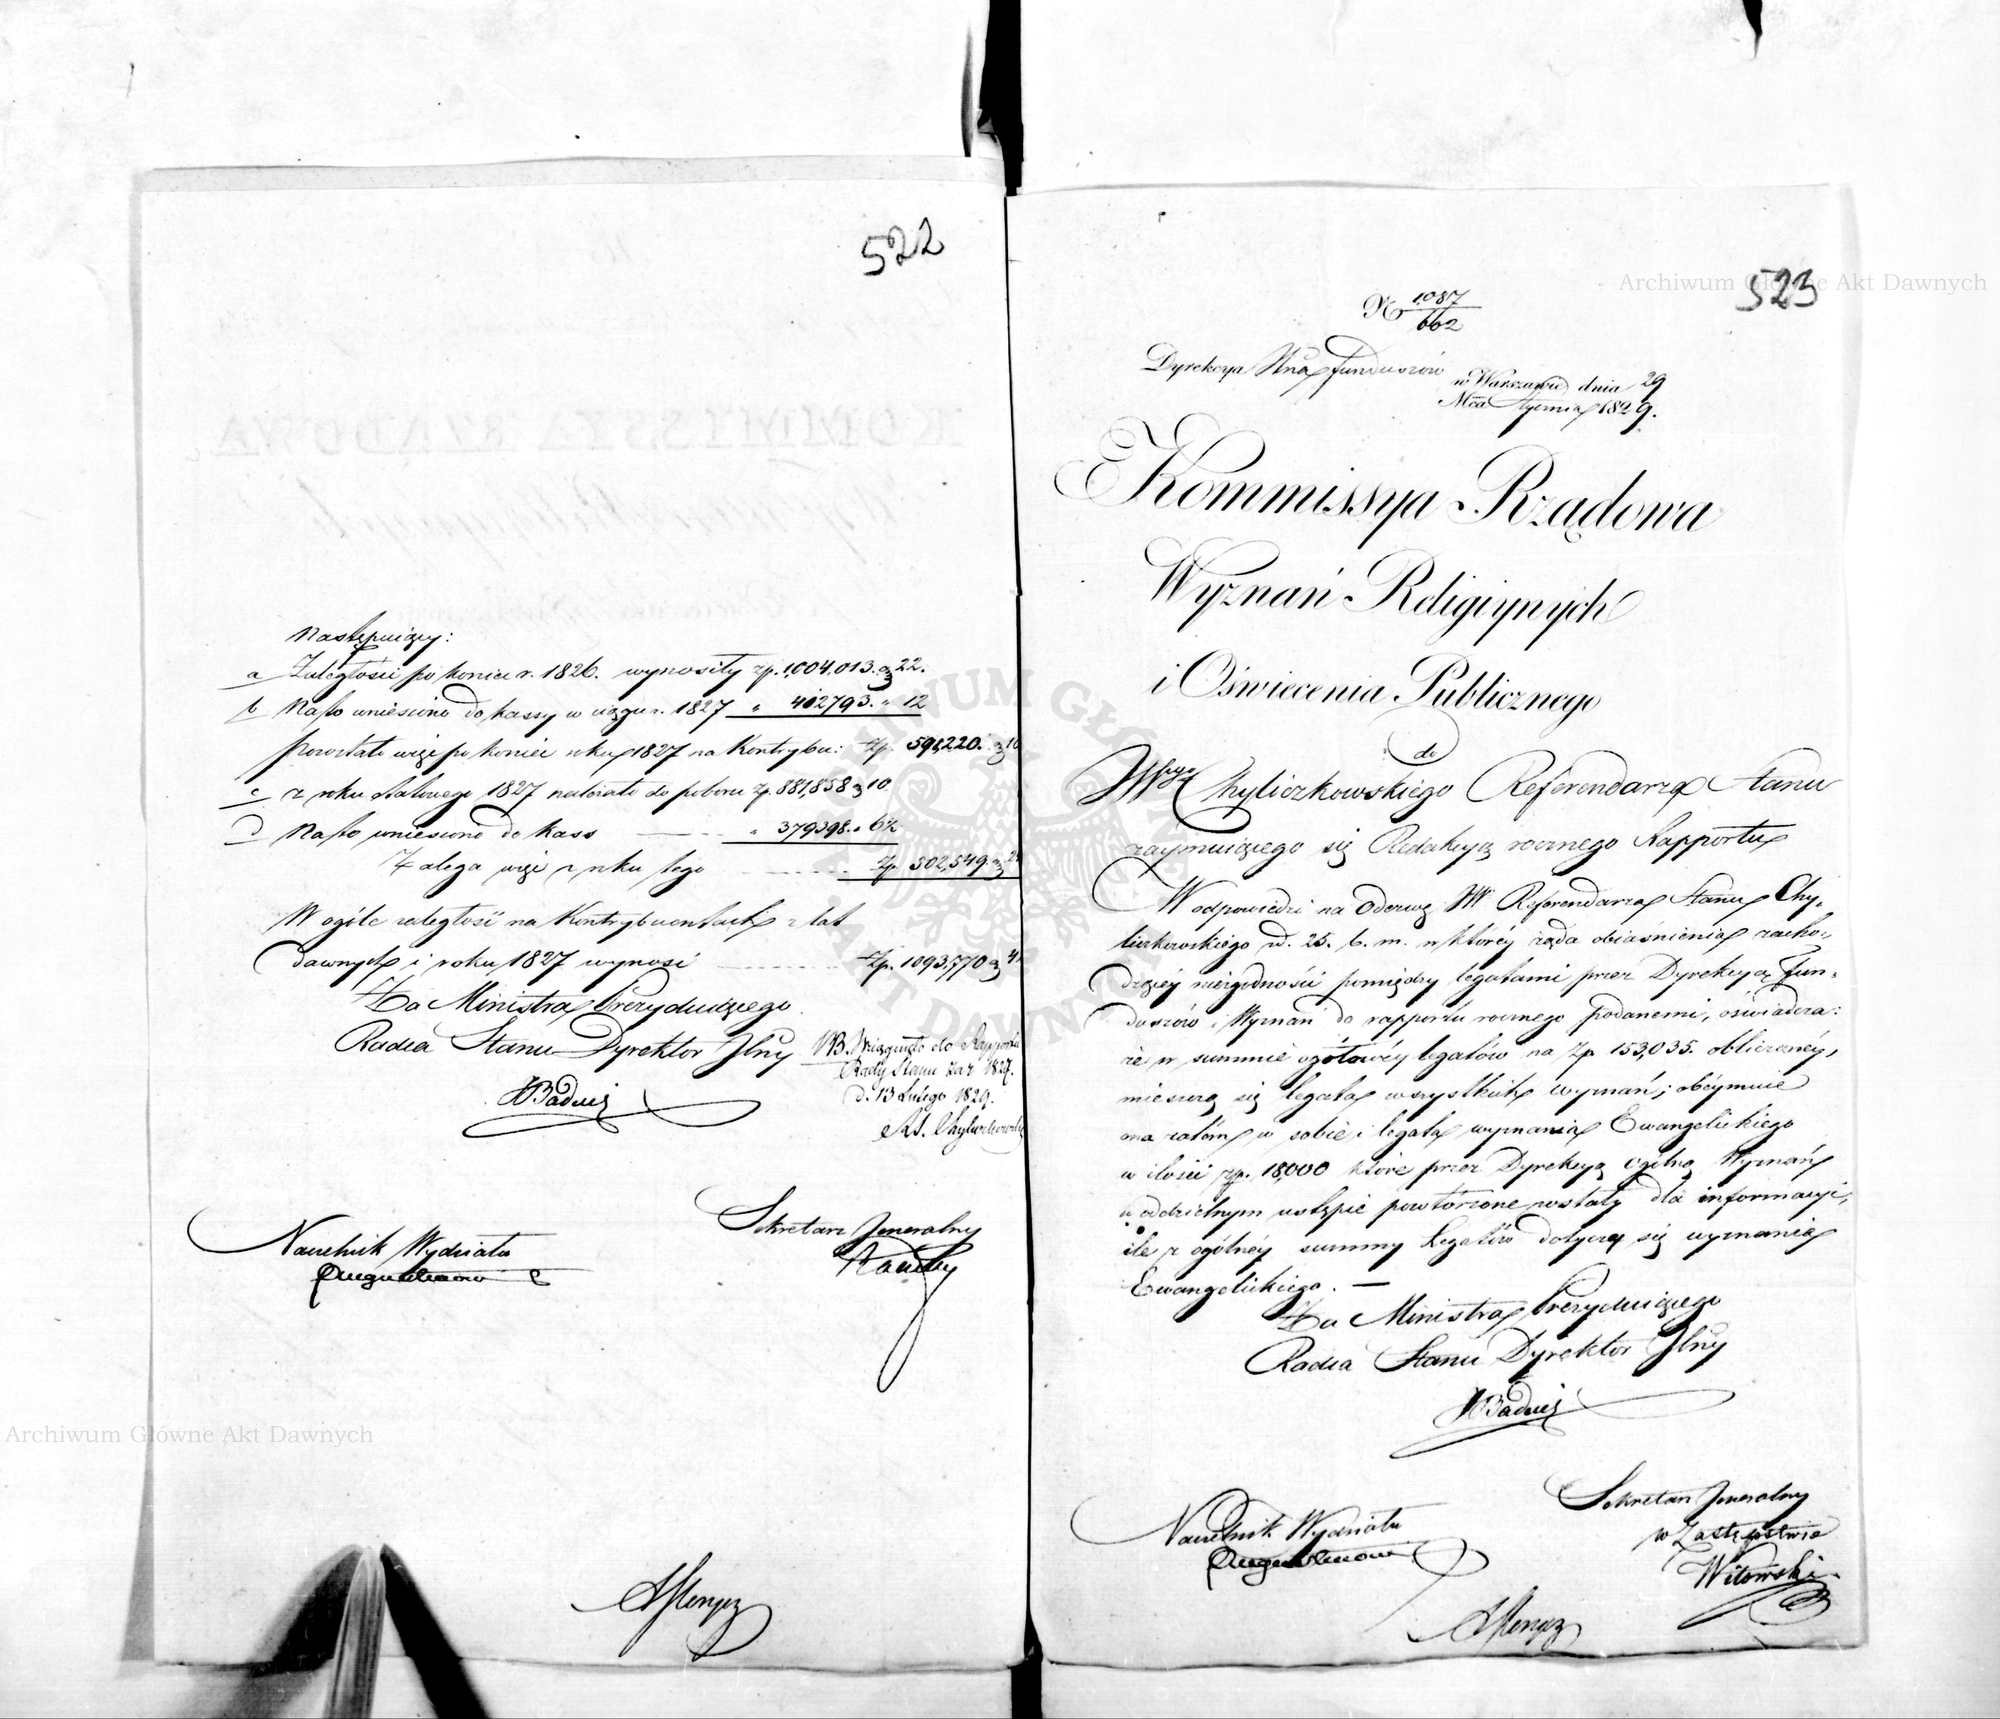 522
następuiący:
a Zaległości po koniec r. 1826. wynosiły zp. 1,004,013. g 22.
b Na to wniesiono do kassy w ciągu r. 1827 " 412793. " 12
pozostało więc po koniec roku 1827 na Kontrybu: Zp. 591,220. g 10
c z roku etatowego 1827 należało do poboru zp. 881,858 g 10
d Na to wniesiono do kass " 379398. " 6½
Zalega więc z roku tego Zp. 502,549. g
W ogóle zaległość na Kontrybuentach z lat
dawnych i roku 1827 wynosi Zp. 1093,770 g
Za Ministra Prezyduiącego
Radca Stanu Dyrektor Jlny
Badeni
NB. Wciągnięto do Rapportu
Rady Stanu za r 1827.
d. 13 Lutego 1829.
Naczelnik Wydziału
Sekretarz Jeneralny
523
N 1087/662
Dyrekcya Funduszów
w Warszawie dnia 29
Mca Stycznia 1829.
Kommissya Rządowa
Wyznań Religiynych
i Oświecenia Publicznego
do
Chyliczkowskiego Referendarza Stanu
zaymuiącego się Redakcyą rocznego Rapportu
W odpowiedzi na Odezwę JW Referendarza Stanu Chy-
liczkowskiego d. 25. b. m. w którey żąda obiaśnienia zacho-
dzącey niezgodności pomiędzy legatami przez Dyrekcyą Fun-
duszów i Wyznań do rapportu rocznego podanemi, oświadcza:
że w summie ogółowey legatów na Zp 153,035. obliczoney,
mieszczą się legata wszystkich wyznań; obeymuie
ona zatem w sobie i legata wyznania Ewangelickiego
w ilości zp. 18,000 które przez Dyrekcyą ogólną Wyznań
w oddzielnym ustępie powtórzone zostały dla informacyi,
ile z ogólney summy Legatów dotyczą się wyznania
Ewangelickiego. —
Za Ministra Prezyduiącego
Radca Stanu Dyrektor Jlny
Badeni
Naczelnik Wydziału
Sekretarz Jeneralny
w Zastępstwie
Witowski
Archiwum Główne Akt Dawnych
Archiwum Główne Akt Dawnych